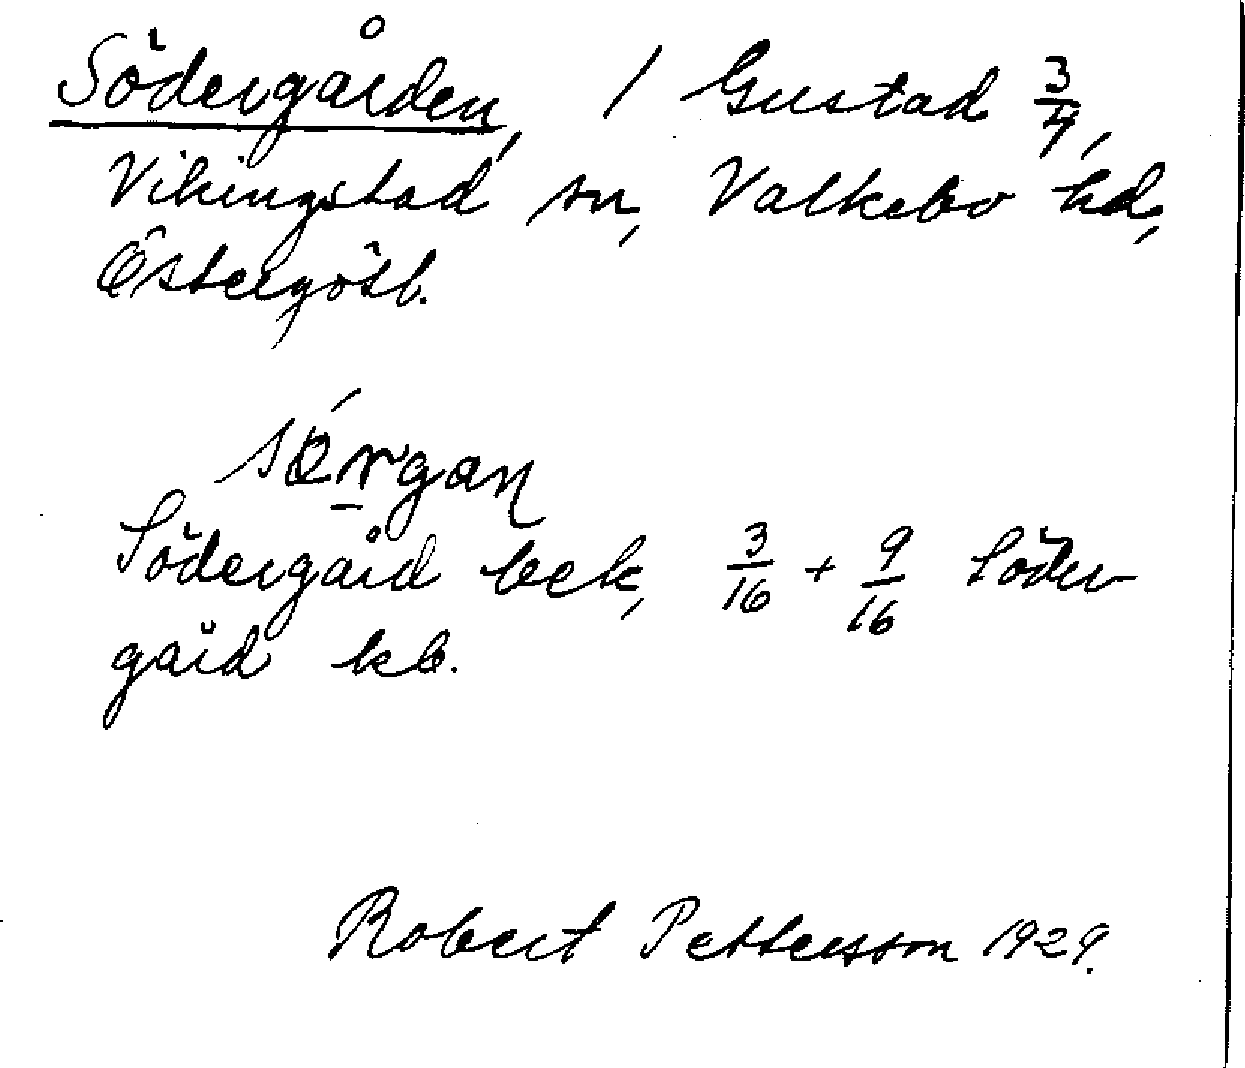 Södergården, / Gustad 3/4,
Vikingstad sn, Valkebo hd,
Östergötl.
Södergård bek, 3/16 + 9/16 Söder
gård kb.
Robert Pettersson 1929.